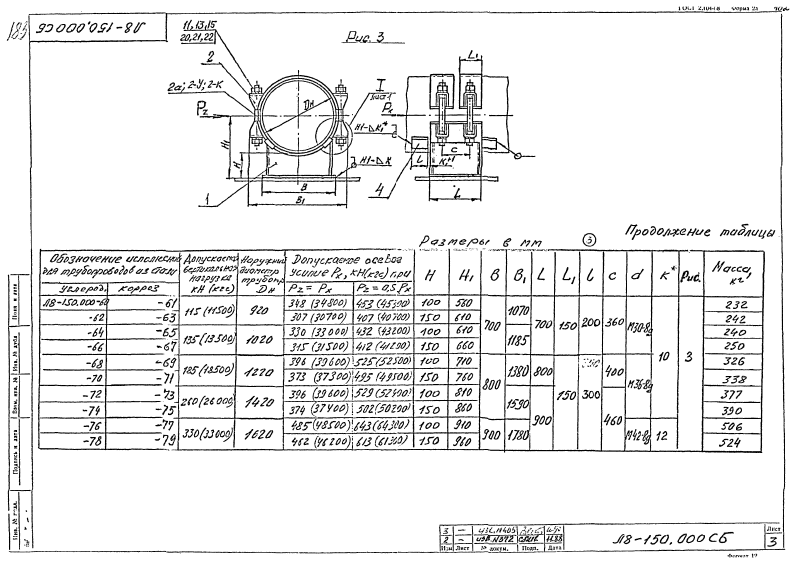 ГОСТ 2.104-68 Форма 2а
Л8-150.000СБ
Рис. 3
11,13,15
20,21,22
2
2а; 2-У; 2-К
Pz
Dн
I
Н1
Н
1
В
В1
Н1-△К
L1
Px
Н1-△К1*
4
l
c
L
Размеры в мм
3
Продолжение таблицы
Обозначение исполнения для трубопроводов из стали
Допускаемая вертикальная нагрузка кН (кгс)
Наружный диаметр трубопр. Dн
Допускаемое осевое усилие Px, кН(кгс) при
H H1 B B1 L L1 l c d К* Рис. Масса, кг
углерод. корроз. Pz = Px Pz = 0,5 Px
Л8-150.000-60 -61 115 (11500) 920 348 (34800) 453 (45300) 100 580 700 1070 700 150 200 360 М30-8g 10 3 232
-62 -63 307 (30700) 407 (40700) 150 610 242
-64 -65 135 (13500) 1020 330 (33000) 432 (43200) 100 610 1185 240
-66 -67 315 (31500) 412 (41200) 150 660 250
-68 -69 185 (18500) 1220 396 (39600) 525 (52500) 100 710 800 1380 800 150 300 400 М36-8g 326
-70 -71 373 (37300) 495 (49500) 150 760 338
-72 -73 260 (26000) 1420 396 (39600) 529 (52900) 100 810 1590 900 460 377
-74 -75 374 (37400) 502 (50200) 150 860 390
-76 -77 330 (33000) 1620 485 (48500) 643 (64300) 100 910 900 1780 М42-8g 12 506
-78 -79 462 (46200) 613 (61300) 150 960 524
Подп. и дата
Инв. № дубл.
Взам. инв. №
Подпись и дата
Инв. № подл.
3 –
2 –
Изм Лист № докум. Подп. Дата
Л8-150.000СБ
Лист
3
Формат